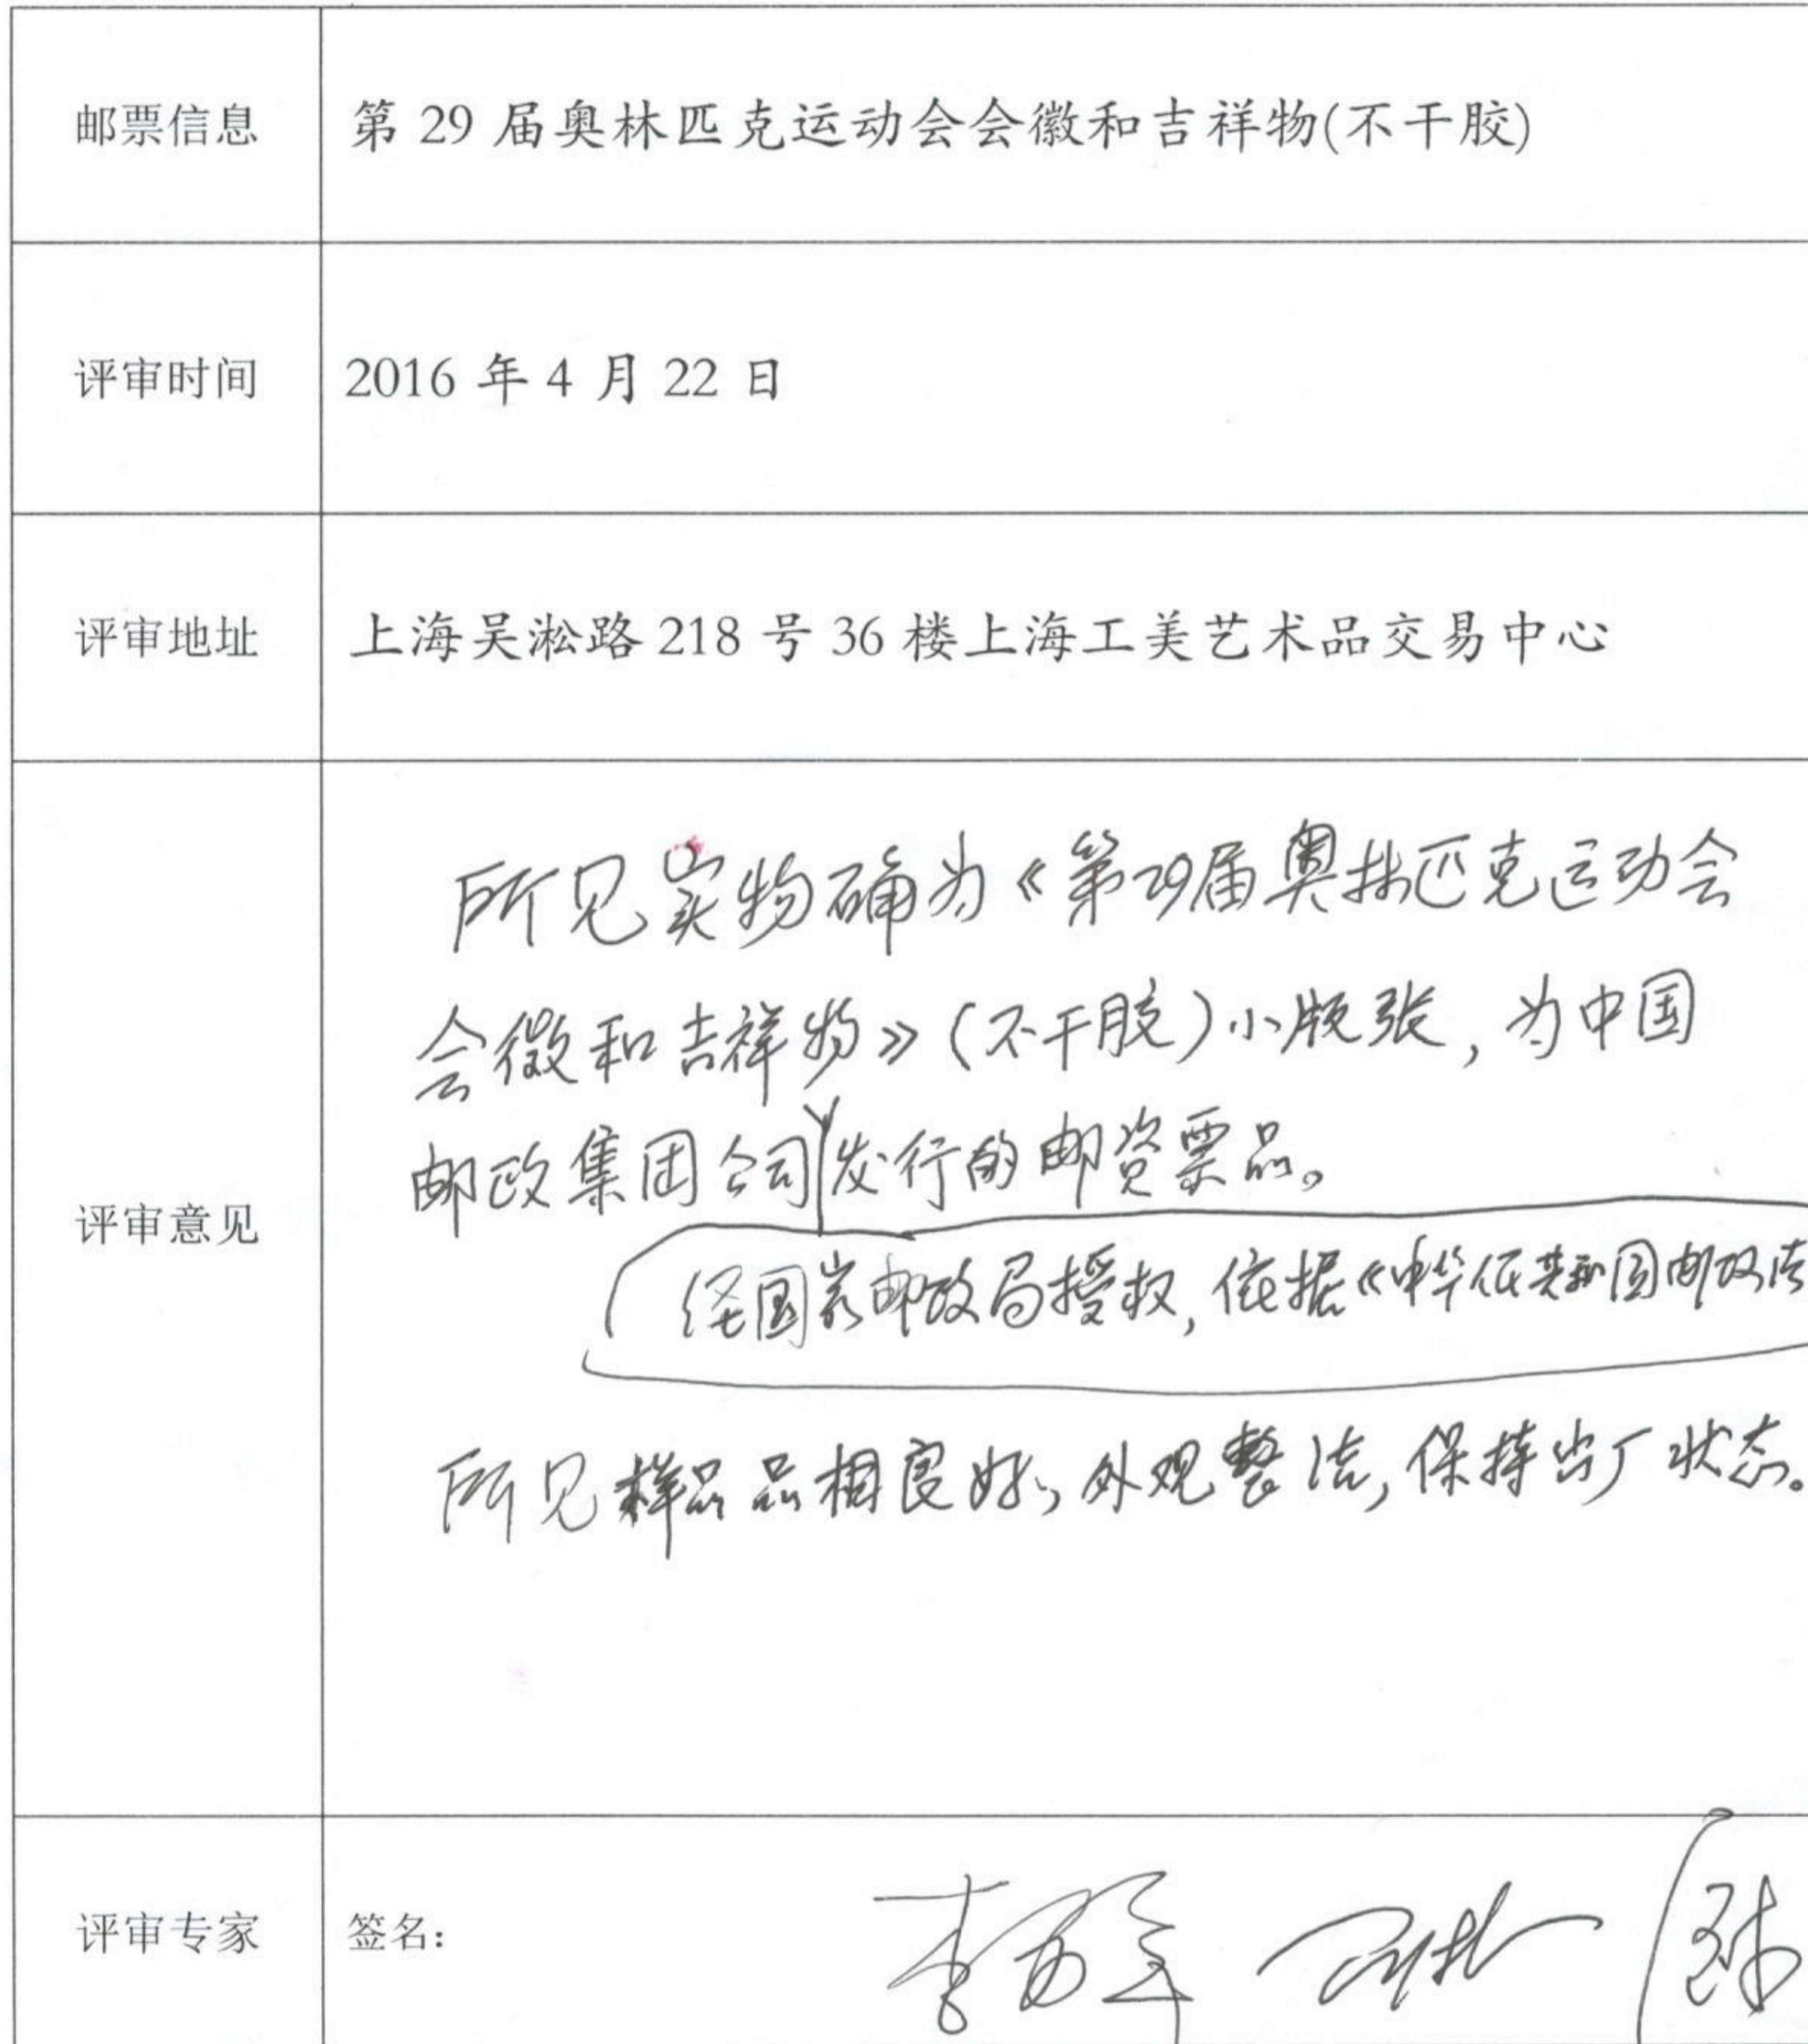 邮票信息 第 29 届奥林匹克运动会会徽和吉祥物(不干胶)
评审时间 2016 年 4 月 22 日
评审地址 上海吴淞路 218 号 36 楼上海工美艺术品交易中心
评审意见
所见实物确为《第29届奥林匹克运动会
会徽和吉祥物》(不干胶)小版张,为中国
邮政集团公司发行的邮资票品。
经国家邮政局授权,依据《中华人民共和国邮政法
所见样品品相良好,外观整洁,保持出厂状态。
评审专家 签名: